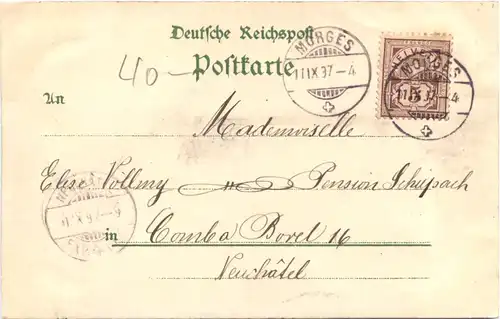 Deutsche Reichspost
Postkarte
40-
MORGES
11 IX 97-4
HELVETIA
MORGES
11 IX 97-4
An
Mademoiselle
Elise Vollmy Pension Schüpach
in Comba Borel 16
Neuchâtel